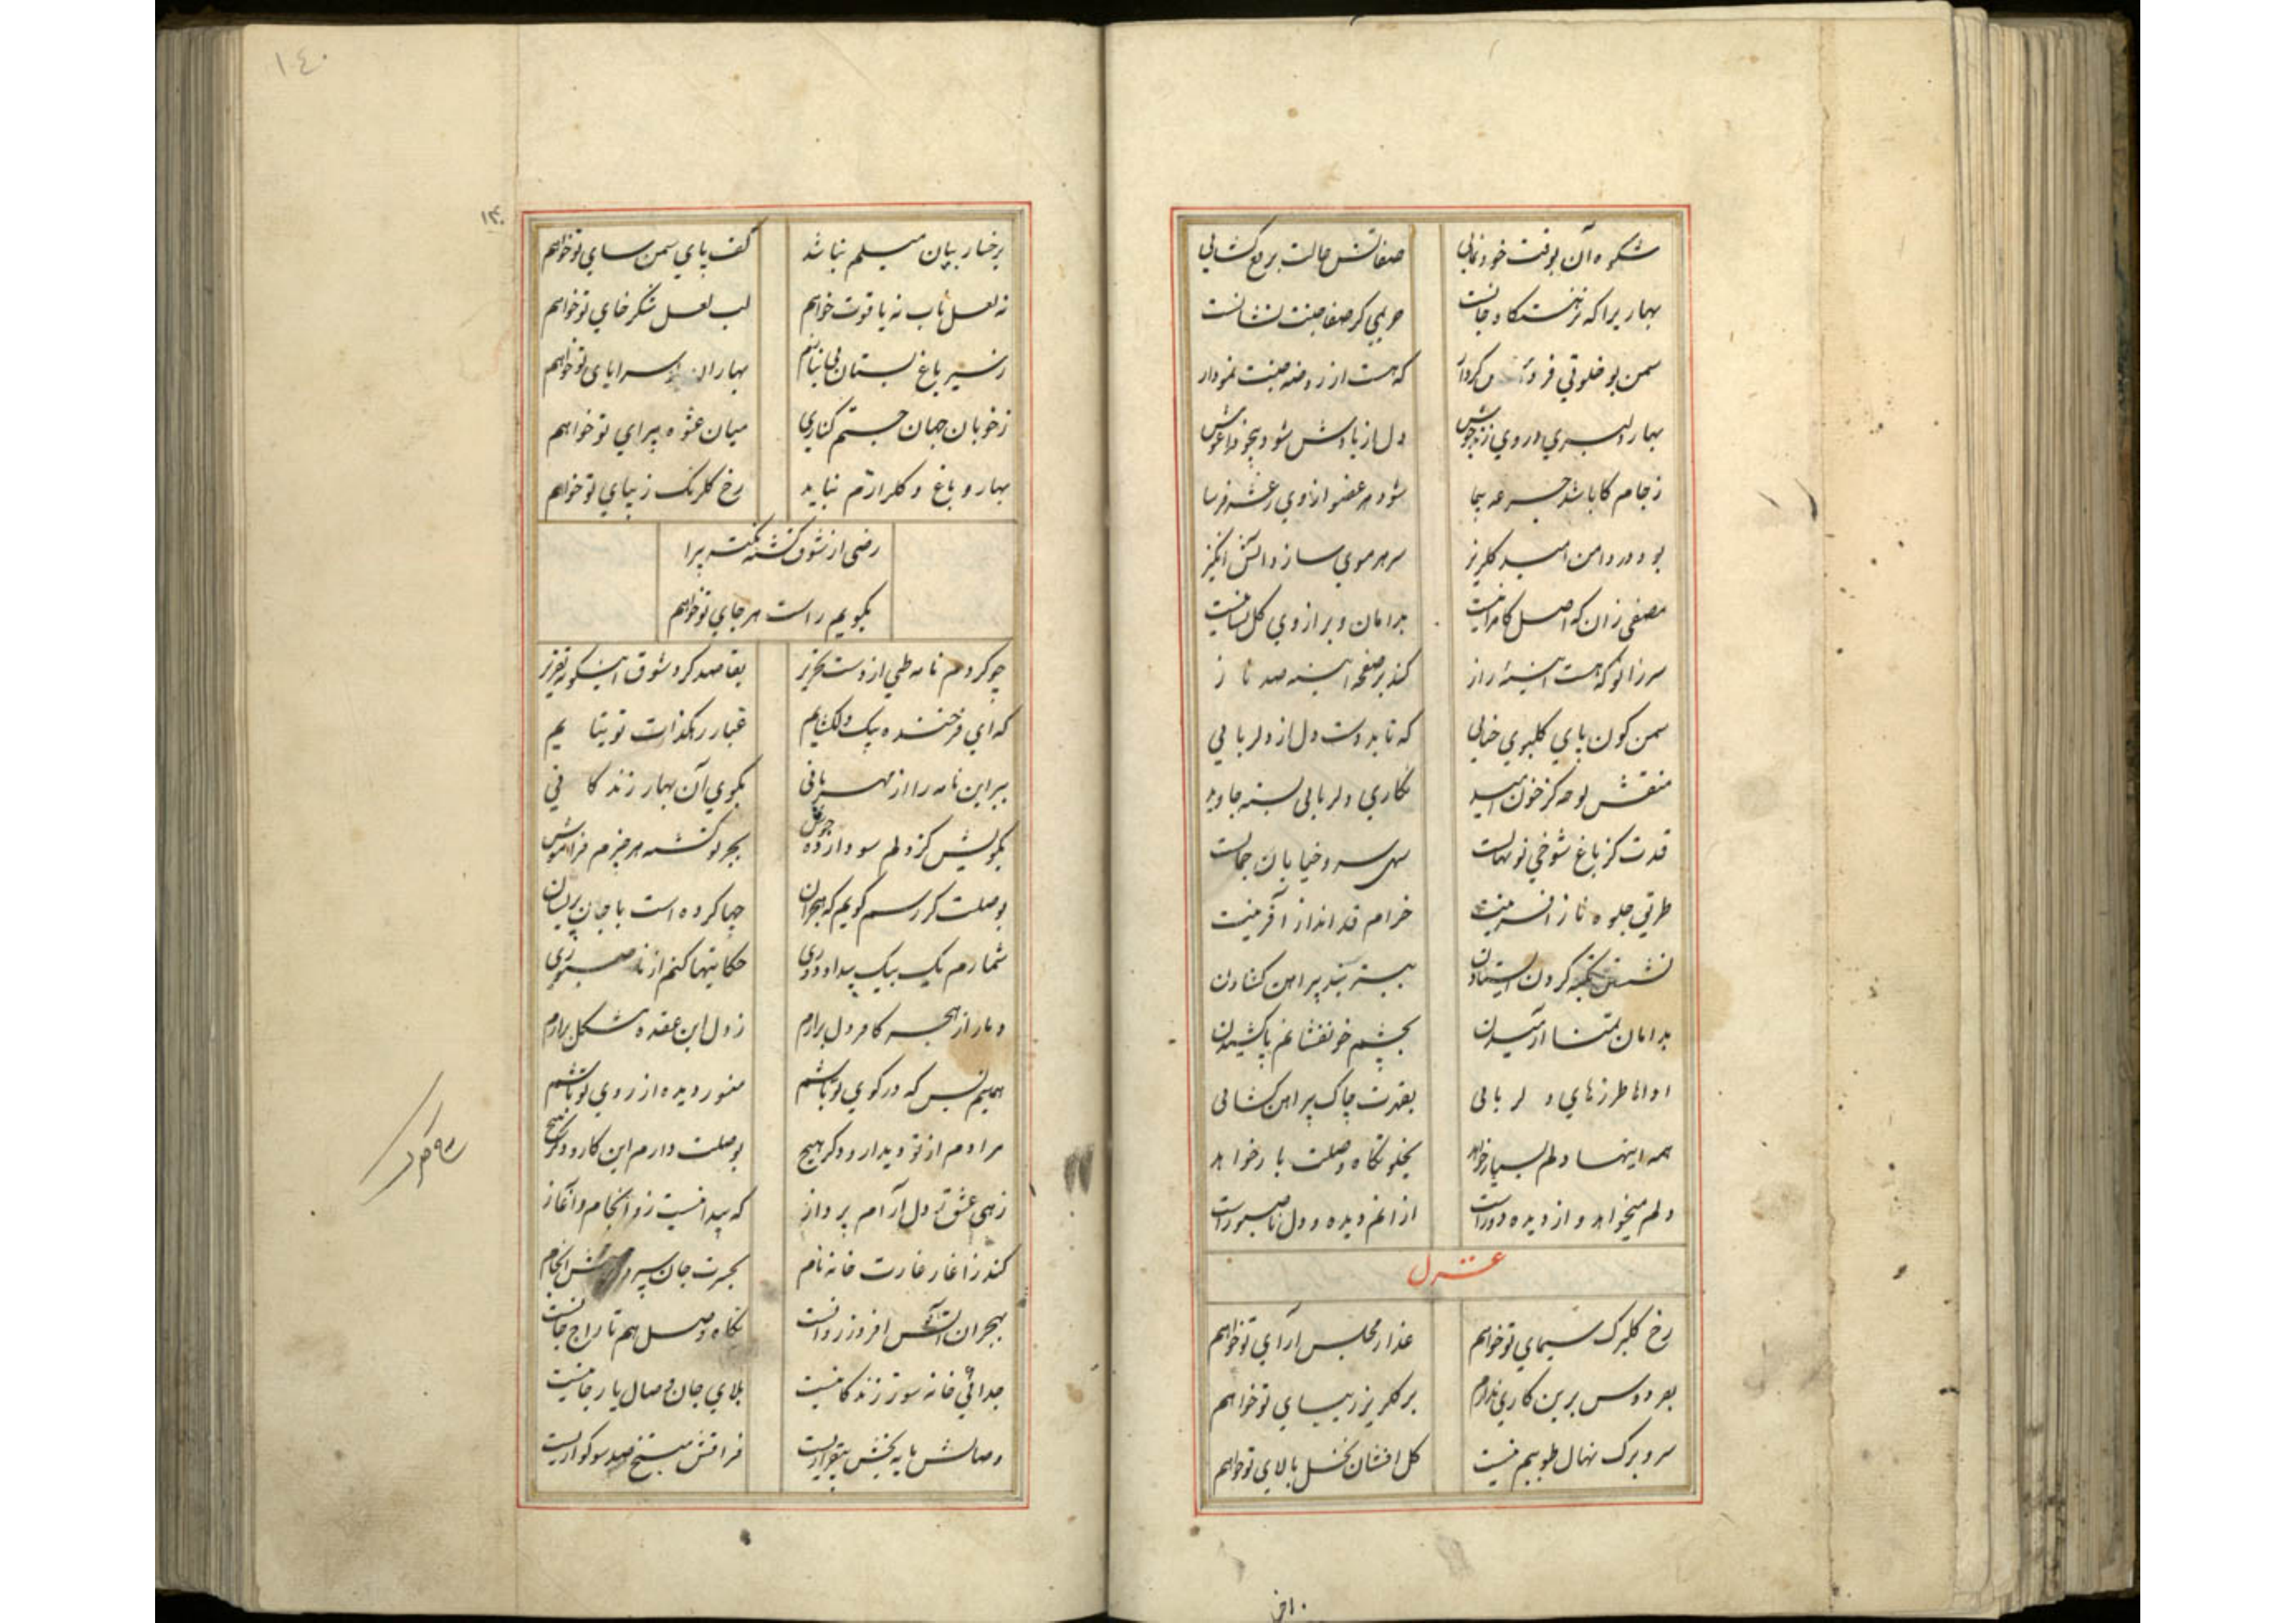 شکوه آن بوقت خودنمایی
صفاتش حالت برقع کشایی
بهاریرا که نزهتگاه جانست
حریمی کز صفا جنت نشانست
سمن بو خلوتی کردار
که هست از روضه جنت نمودار
بهار دلبری در وی زند جوش
دل از یادش شود بیخود در آغوش
ز جام کا باشد جرعه پیما
شود هر عضو از وی رعشه فرسا
بود در دامن امید کلریز
سر هر موی ساز و آتش انکیز
مصفی زان که اصل کامرانیست
بدامان و بر از وی کل فشانیست
سر زانو که هست آیینه راز
کند بر صفحه آیینه صد ناز
سمن کون پای کلبوی حنایی
که تابد دست دل از دلربایی
منقش لوحه کز خون امید
نکاری دلربایی بسته جاوید
قدت کز باغ شوخی نونهالست
سهی سرو خیابان جمالست
طریق جلوه ناز آفرینت
خرام قد انداز آفرینت
نشستن تکیه کردن ایستادن
ببستر بند پیراهن کشادن
بدامان تمنا آرمیدن
بچشم خونفشانم پا کشیدن
اداها طرزهای دلربایی
بقدرت چاک پیراهن کشایی
همه اینها دلم بسیار خواهد
بخلوتکاه وصلت بار خواهد
دلم میخواهد و از دیده دوراست
ازان غم دیده و دل ناصبوراست
غزل
رخ کلبرک سیمای تو خواهم
عذار مجلس آرای تو خواهم
بفردوس برین کاری ندارم
بر کلریز زیبای تو خواهم
سر و برک نهال طوبیم نیست
کل افشان نخل بالای تو خواهم
۱۴۰
۱۴۰
برخسار بتان میلم نباشد
کف پای سمن سای تو خواهم
نه لعل ناب نه یاقوت خواهم
لب لعل شکر خای تو خواهم
ز سیر باغ بستان بی نیازم
بهاران سراپای تو خواهم
ز خوبان جهان جستم کناری
میان عشوه پیرای تو خواهم
بهار و باغ و کلزارم نباید
رخ کلرنک زیبای تو خواهم
رضی از شوق کشته نکته پیرا
بکویم راست هر جای تو خواهم
چو کردم نامه طی از دست تحریر
بقاصد کرد شوق اینکونه تقریر
که ای فرخنده پیک دلکشایم
غبار رهکذارت توتیایم
ببر این نامه را از مهربانی
بکوی آن بهار زندکانی
بکویش کز دلم سودا زده جوش
بجز تو کشته هر چیزم فراموش
بوصلت کر رسم کویم که هجران
چها کرده است با جان پریشان
شمارم یک بیک بیداد دوری
حکایتها کنم از ناصبوری
دمار از هجر کافر دل برارم
ز دل این عقده مشکل برارم
همینم بس که در کوی تو باشم
منور دیده از روی تو باشم
مرادم از تو دیدار و دکر هیچ
بوصلت دارم این کار و دکر هیچ
زهی عشق تو دل آرام پرداز
که پیدا نیست زو انجام و آغاز
کند ز آغاز غارت خانه نام
بحسرت جان سپردن انجام
بهجران آتش افروز روانست
نکاه وصل هم تاراج جانست
جدائی خانه سوز زندکانیست
بلای جان وصال یار جانیست
وصالش مایه بخش بیقراریست
فراقش منتج صد سوکواریست